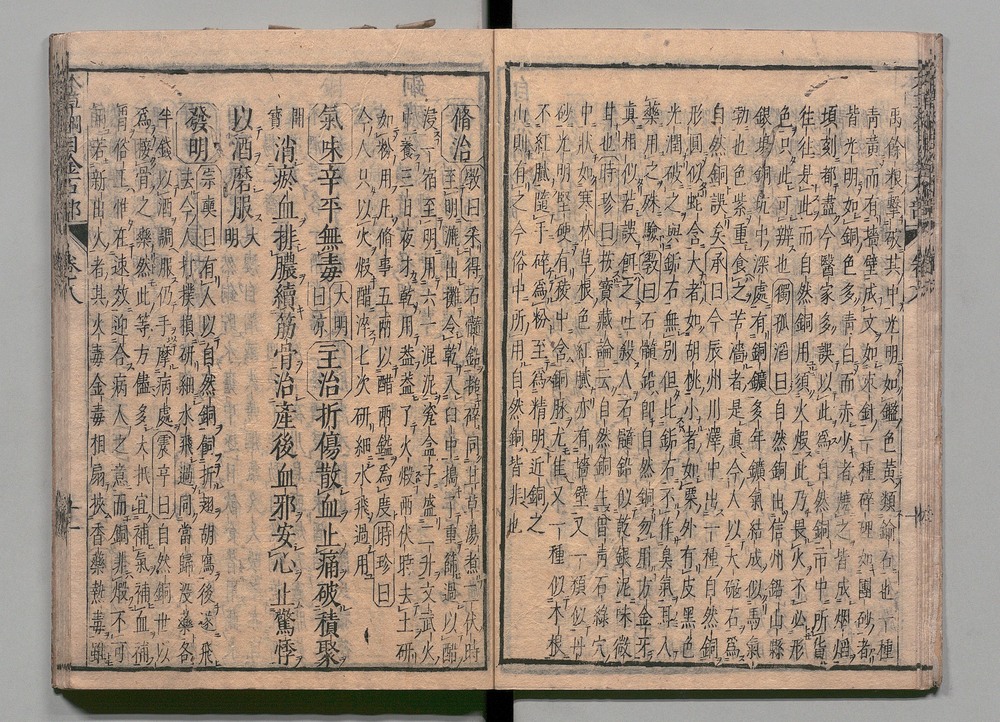 禹餘粮擊破其中光明如鑑色黄類鍮石也一種
青黄而有墻壁成文如束針一種碎理如團砂者
皆光明如銅色多青白而赤少者燒之皆成烟焰
頃刻都盡今醫家多誤以此為自然銅市中所貨
往往是此而自然銅用須火煅此乃畏火不必形
色只此可辨也獨孤滔曰自然銅出信州鉛山縣
銀塲銅坑中深處有銅鑛多年鑛氣結成似馬氣
勃也色紫重食之苦濇者是真今人以大碗石為
自然銅誤矣承曰今辰州川澤中出一種自然銅
形圓似蛇含大者如胡桃小者如栗外有皮黑色
光潤破之與鉐石無别但比鉐石不作臭氣耳入
藥用之殊驗斅曰石髓鉛即自然銅勿用方金牙
真相似若誤餌之吐殺人石髓鉛似乾銀泥味微
甘也時珍曰按寶藏論云自然銅生曽青石綠穴
中狀如寒林草根色紅膩亦有墻壁又一類似丹
砂光明堅硬有稜中含銅脉尤佳又一種似木根
不紅膩隨手碎為粉至為精明近銅之
山則有之今俗中所用自然銅皆非也
脩治 斅曰采得石髓鉛搥碎同甘草湯煮一伏時
至明漉出攤令乾入臼中搗了重篩過以醋
浸一宿至明用六一泥泥瓷盒子盛二升文武火
中養三日夜才乾用蓋蓋了火煅兩伏時去土研
如粉用凡脩事五兩以醋兩鎰為度時珍曰
今人只以火煅醋淬七次研細水飛過用
氣味辛平無毒 大明曰凉 主治折傷散血止痛破積聚
開寶 消瘀血排膿續筋骨治産後血邪安心止驚悸
以酒磨服 大明
發明 宗奭曰有人以自然銅飼折翅胡鴈後遂飛
去今人打撲損研細水飛過同當歸没藥各
半錢以酒調服仍手摩病處震亨曰自然銅世以
為接骨之藥然此等方儘多大抵宜補氣補血補
胃俗工惟在速效迎合病人之意而銅非煅不可
用若新出火者其火毒金毒相扇挾香藥熱毒雖
本草綱目金石部 卷八 十一